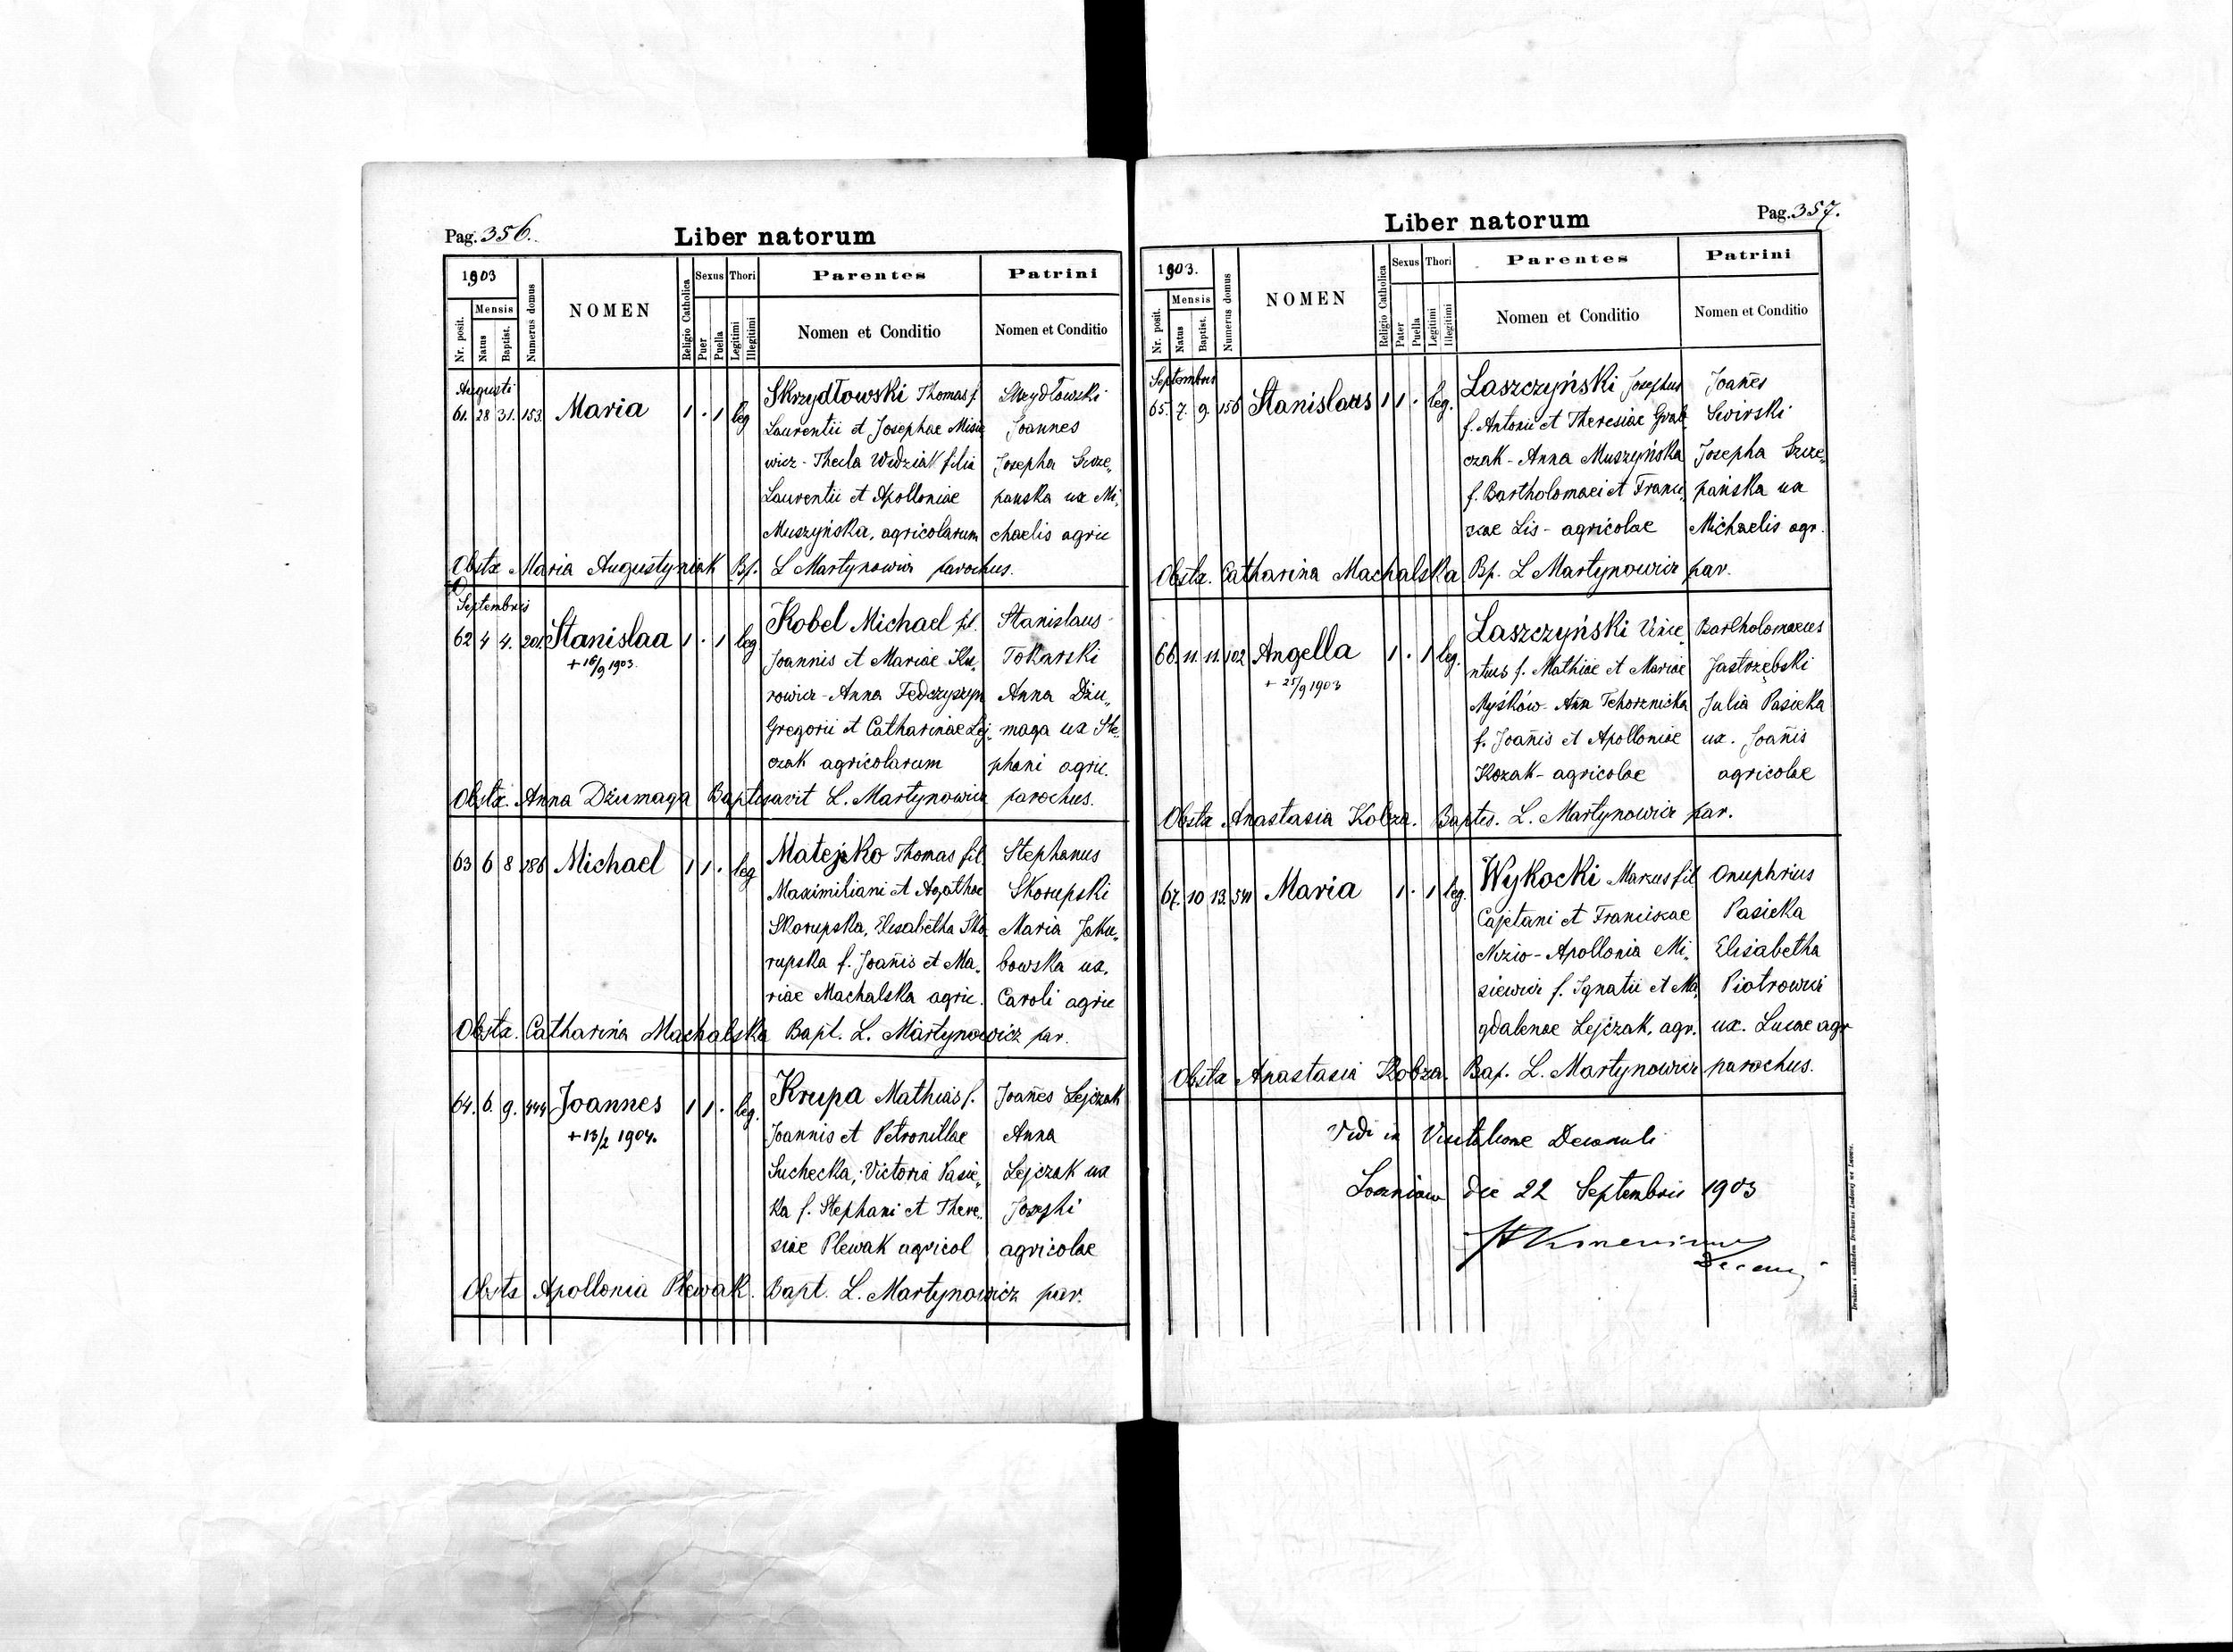 Pag. 356.
Liber natorum
1903
Nr. posit.
Mensis
Natus
Baptist.
Numerus domus
NOMEN
Religio Catholica
Sexus
Puer
Puella
Thori
Legitimi
Illegitimi
Parentes
Nomen et Conditio
Patrini
Nomen et Conditio
Augusti
61. 28 31. 153. Maria 1 . 1 leg Skrzydłowski Thomas f. Skrzydłowski
Laurentii et Josephae Misie Joannes
wicz - Thecla Widziak filia Josepha Szcze„
Laurentii et Apolloniae pańska ux Mi„
Muszyńska, agricolarum chaelis agric
Obstx Maria Augustyniak Bp. L Martynowicz parochus.
Septembris
62 4 4. 201. Stanislaa 1 . 1 leg Kobel Michael fil. Stanislaus
+ 16/9 1903.
Joannis et Mariae Ku„ Tokarski
rowicz - Anna Fedczyszyn Anna Dżu„
Gregorii et Catharinae Lej„ maga ux Ste„
czak agricolarum phani agric.
Obstx. Anna Dżumaga Baptisavit L. Martynowicz parochus.
63 6 8 286 Michael 1 1 . leg Matejko Thomas fil Stephanus
Maximiliani et Agathae Skorupski
Skorupska, Elisabetha Sko Maria Jaku„
rupska f. Joan̄is et Ma„ bowska ux.
riae Machalska agric. Caroli agric
Obstx. Catharina Machalska Bapt. L. Martynowicz par.
64. 6. 9. 444 Joannes 1 1 . leg. Krupa Mathias f. Joan̄es Lejczak
+ 13/2 1904.
Joannis et Petronillae Anna
Suchecka, Victoria Pasie„ Lejczak ux
ka f. Stephani et There„ Josephi
siae Plewak agricol agricolae
Obstx Apollonia Plewak. Bapt. L. Martynowicz par.
Pag. 357.
Liber natorum
1903.
Nr. posit.
Mensis
Natus
Baptist.
Numerus domus
NOMEN
Religio Catholica
Sexus
Pater
Puella
Thori
Legitimi
Illegitimi
Parentes
Nomen et Conditio
Patrini
Nomen et Conditio
Septembris
65. 7. 9. 156 Stanislaus 1 1 . leg. Laszczyński Josephus Joan̄es
f. Antonii et Theresiae Grab„ Swirski
czak - Anna Muszyńska Josepha Szcze„
f. Bartholomaei et Franci„ pańska ux
scae Lis - agricolae Michaelis agr.
Obstx. Catharina Machalska Bp. L Martynowicz par.
66. 11. 11. 102 Angella 1 . 1 leg. Laszczyński Vince„ Bartholomaeus
+ 25/9 1903
ntius f. Mathiae et Mariae Jastrzębski
Myśków - An̄a Tchorznicka Julia Pasieka
f. Joan̄is et Apolloniae ux. Joan̄is
Kozak - agricolae agricolae
Obstx Anastasia Kobza. Baptis. L. Martynowicz par.
67. 10 13. 541 Maria 1 . 1 leg. Wykocki Marcus fil Onuphrius
Cajetani et Franciscae Pasieka
Mzio - Apollonia Mi„ Elisabetha
siewicz f. Ignatii et Ma„ Piotrowicz
gdalenae Lejczak, agr. ux. Lucae agr
Obstx Anastasia Kobza. Bap. L. Martynowicz parochus.
Vidi in Visitatione Decanali
die 22 Septembris 1903